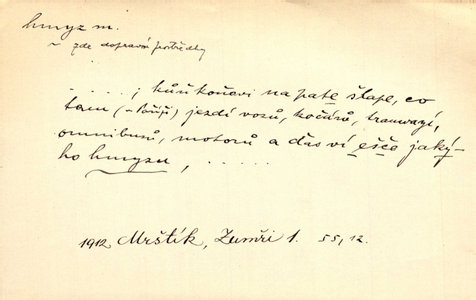 hmyz m.
~ zde dopravní prostředky
. . . . ; kůň koňovi na pate šlape, co
tam (v Paříži) jezdí vozů, kočárů, tramwayí,
omnibusů, motorů a ďas ví ešče jaký-
ho hmyzu, . . . . .
1912 Mrštík, Zumři 1. 55, 12.